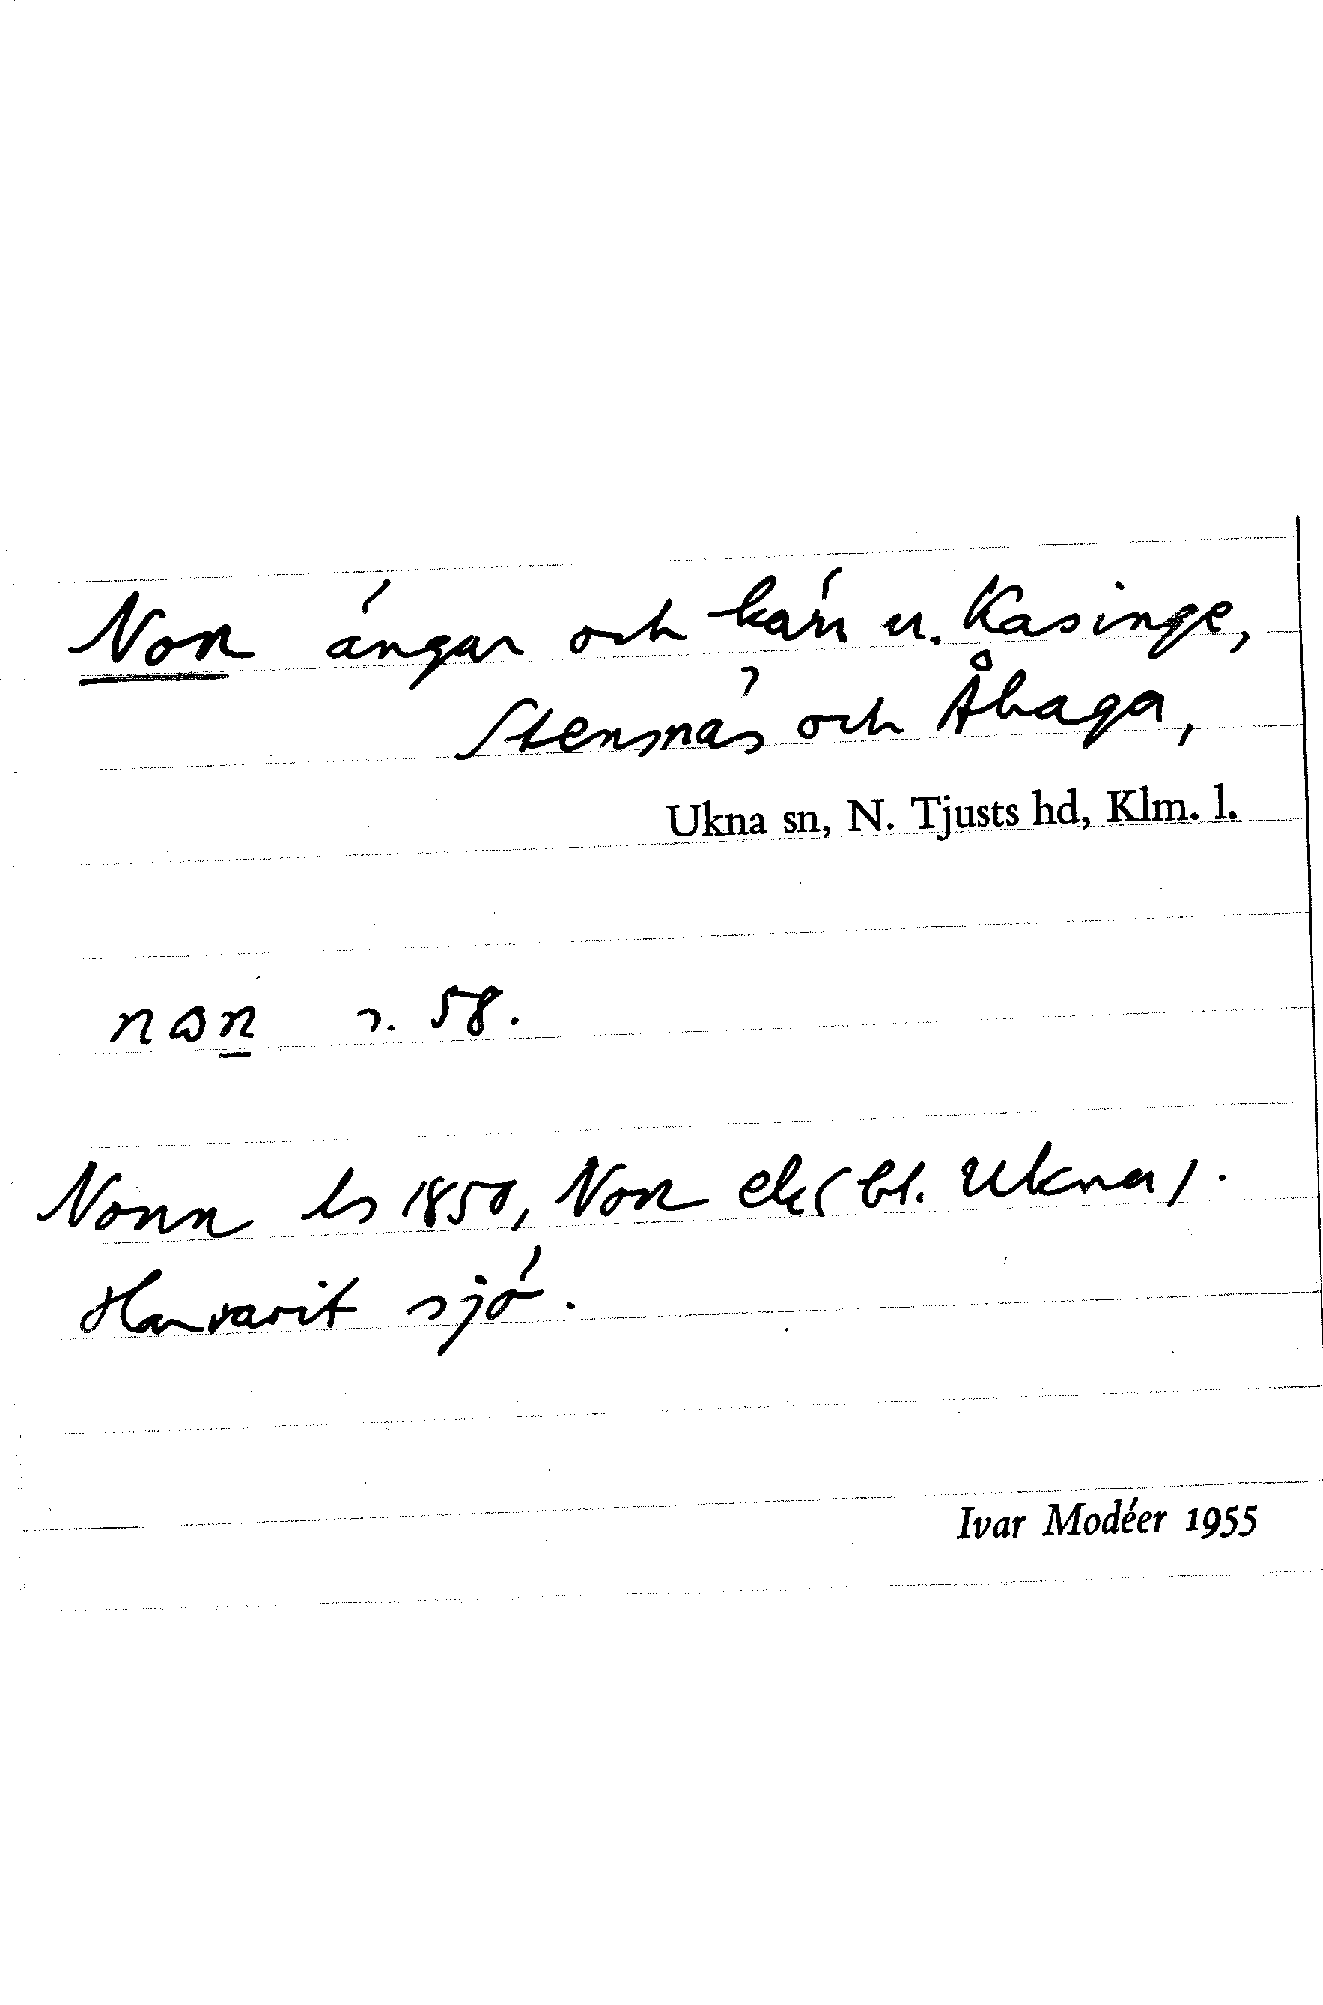 Non ängar och kärr u. Kasinge,
Stensnäs och Åhaga,
Ukna sn, N. Tjusts hd, Klm. l.
s. 58.
Nonn ls 1850, Non ek (bl. Ukna).
Har varit sjö.
Ivar Modéer 1955